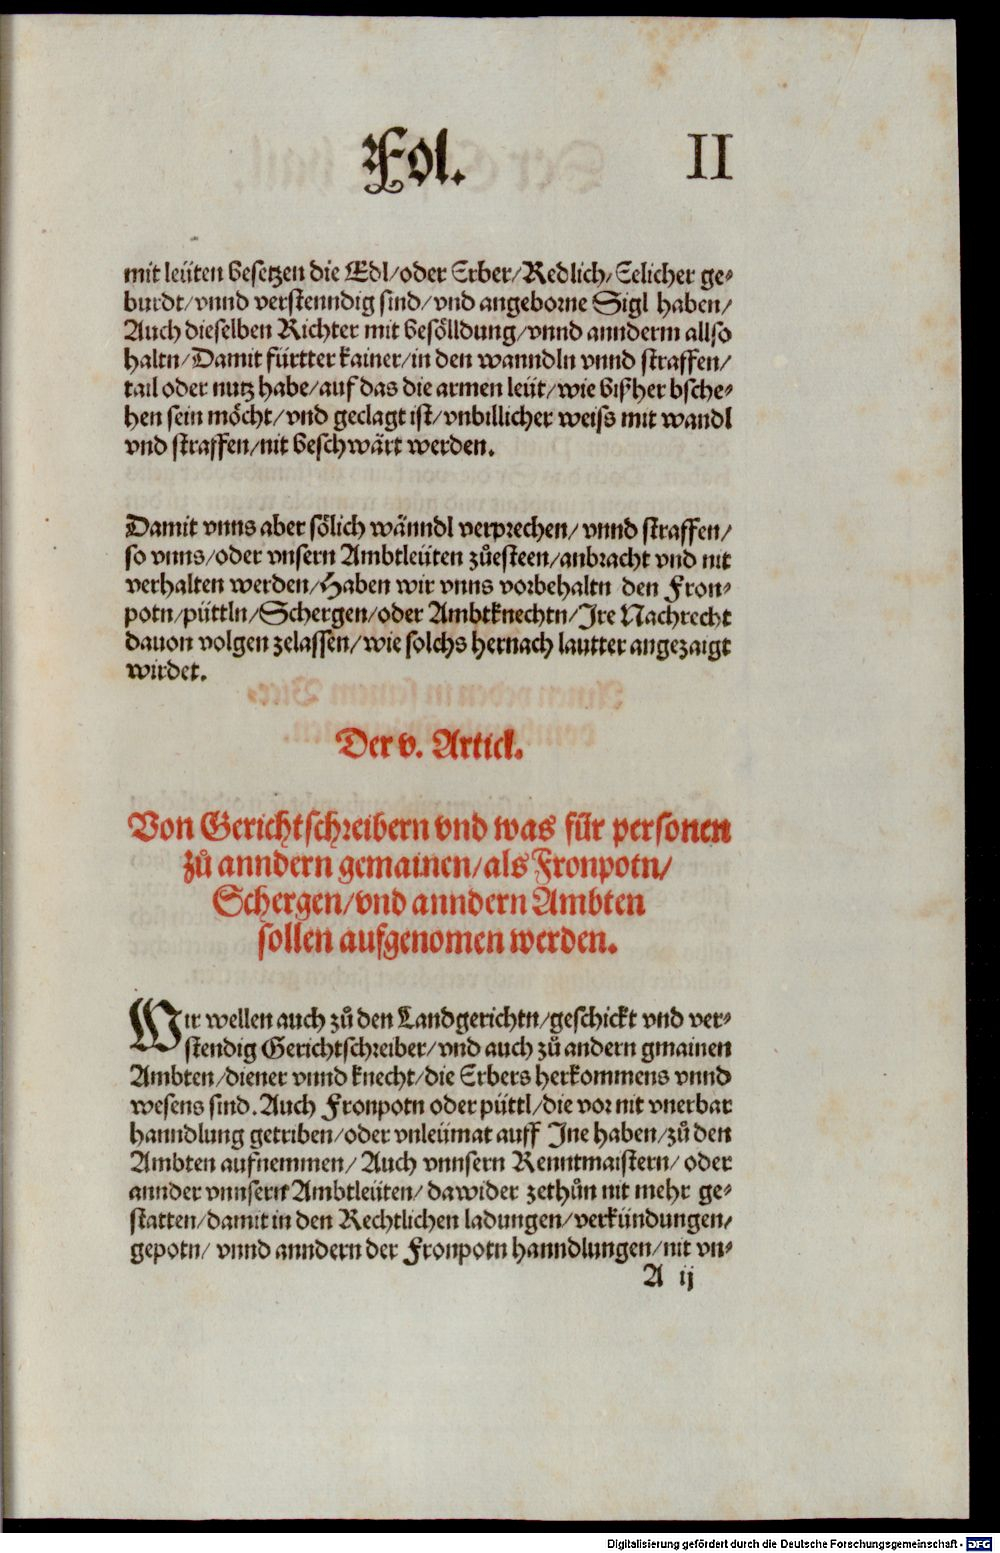 Fol. II
mit leüten besetzen die Edl/oder Erber/Redlich/Eelicher ge⸗
burdt/vnnd verstenndig sind/vnd angeborne Sigl haben/
Auch dieselben Richter mit besölldung/vnnd annderm allso
haltn/Damit fürtter kainer/in den wanndln vnnd straffen/
tail oder nutz habe/auf das die armen leüt/wie bißher bsche⸗
hen sein möcht/vnd geclagt ist/vnbillicher weiss mit wandl
vnd straffen/nit beschwärt werden.
Damit vnns aber sölich wänndl verprechen/vnnd straffen/
so vnns/oder vnsern Ambtleüten zůesteen/anbracht vnd nit
verhalten werden/Haben wir vnns vorbehaltn den Fron⸗
potn/püttln/Schergen/oder Ambtknechtn/Ire Nachrecht
dauon volgen zelassen/wie solchs hernach lautter angezaigt
wirdet.
Der v. Artick.
Von Gerichtschreibern vnd was für personen
zů anndern gemainen/als Fronpotn/
Schergen/vnd anndern Ambten
sollen aufgenomen werden.
Wir wellen auch zů den Landgerichtn/geschickt vnd ver⸗
stendig Gerichtschreiber/vnd auch zů andern gmainen
Ambten/diener vnnd knecht/die Erbers herkommens vnnd
wesens sind. Auch Fronpotn oder püttl/die vor nit vnerbar
hanndlung getriben/oder vnleümat auff Ine haben/zů den
Ambten aufnemmen/Auch vnnsern Renntmaistern/oder
annder vnnsern Ambtleüten/dawider zethůn nit mehr ge⸗
statten/damit in den Rechtlichen ladungen/verkündungen/
gepotn/vnnd anndern der Fronpotn hanndlungen/nit vn⸗
A ij
Digitalisierung gefördert durch die Deutsche Forschungsgemeinschaft - DFG